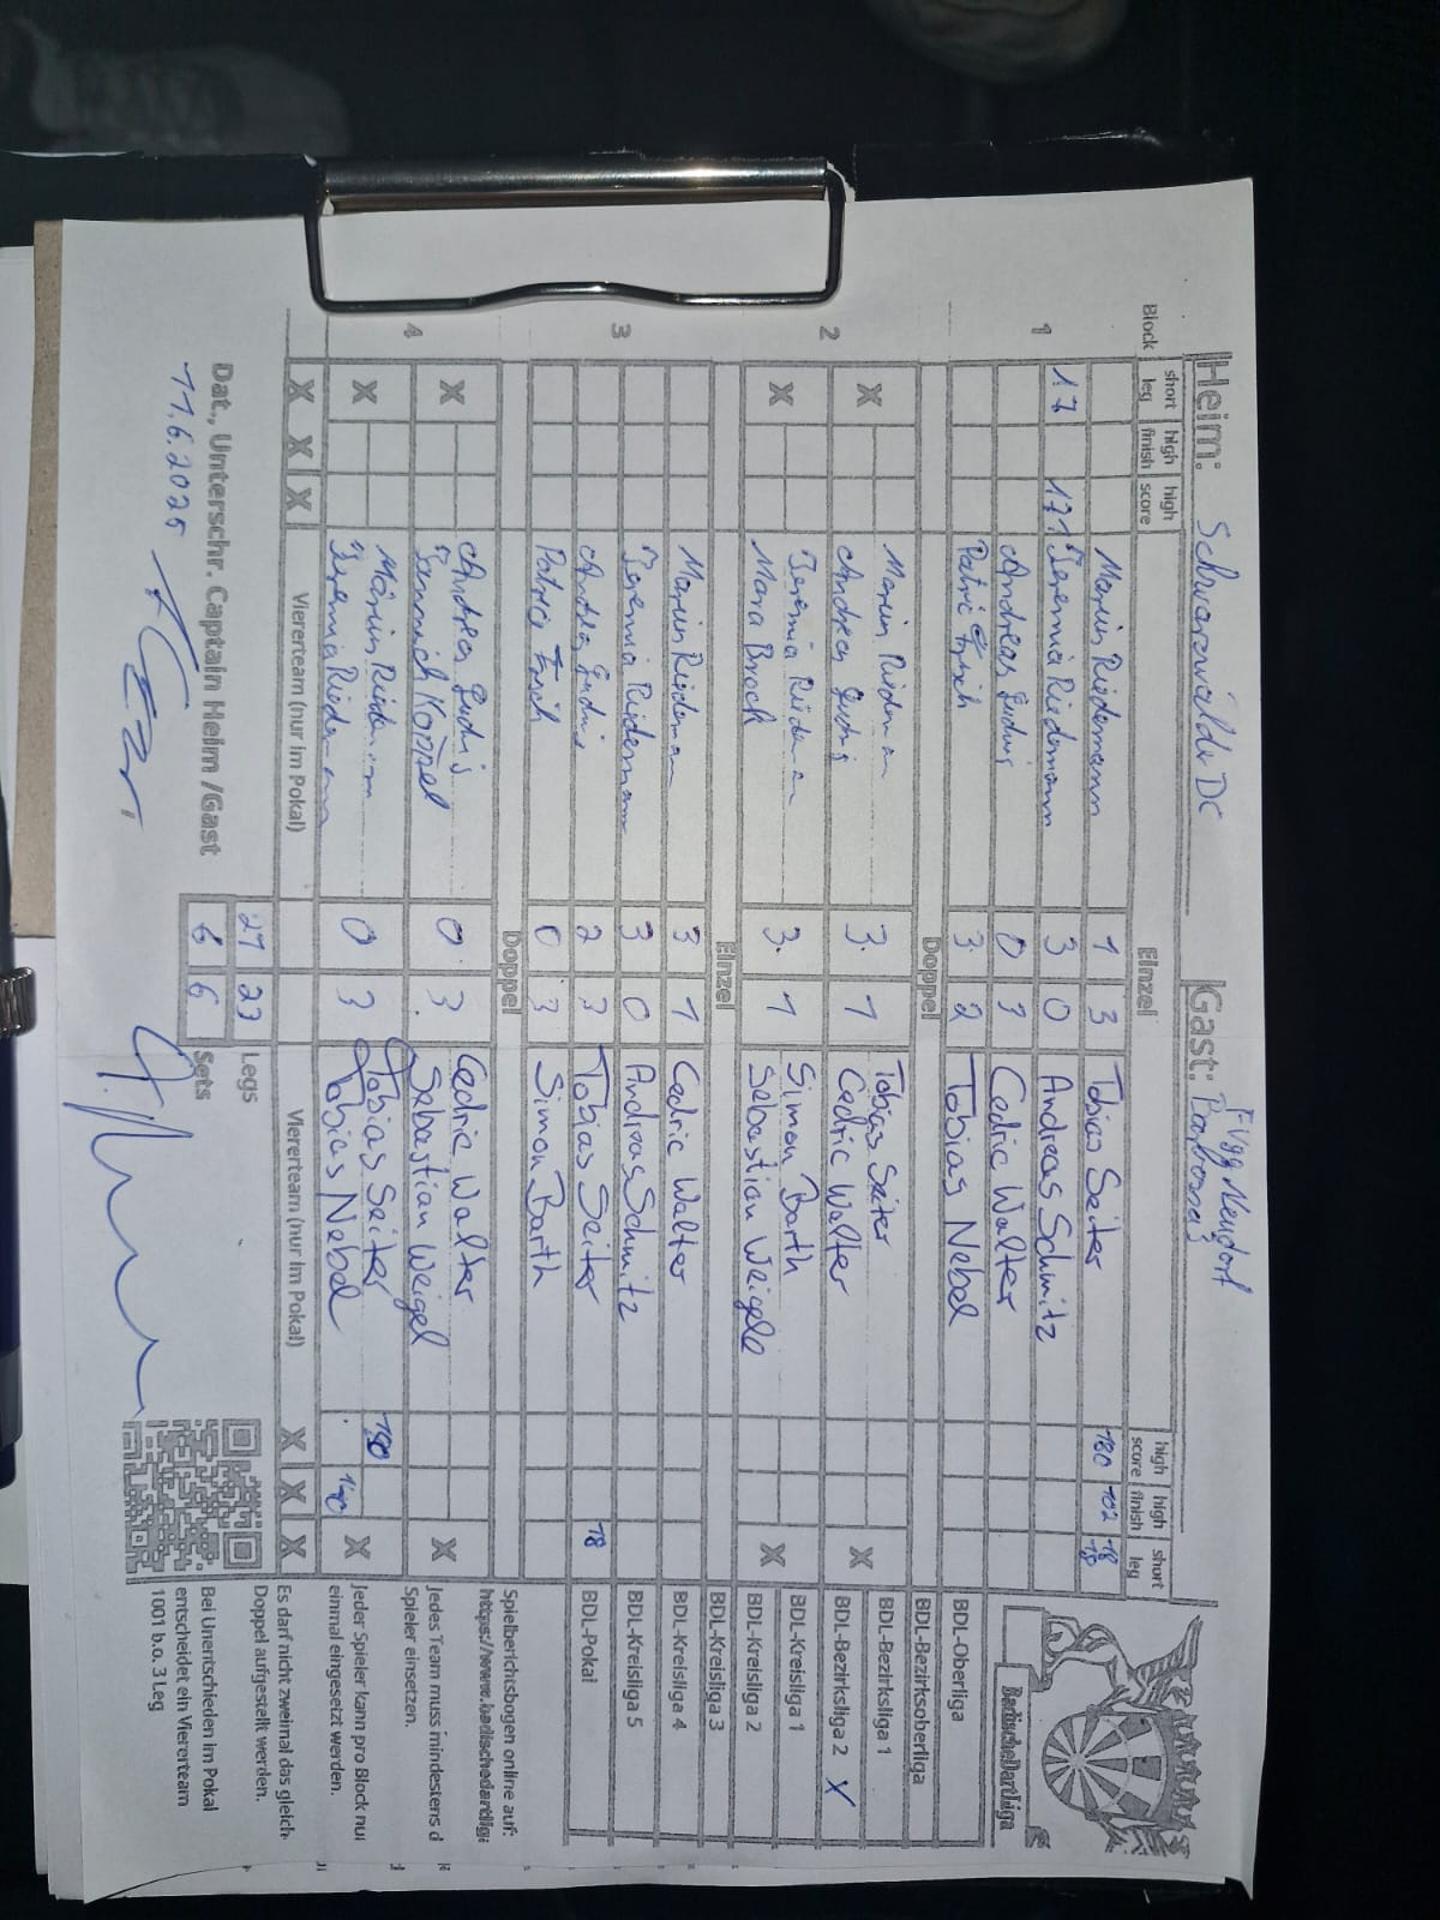 Heim: Schwarzwälder DC Gast: FVgg Neudorf
Barbarossa's
Block short leg high finish high score Einzel high score high finish short leg
1
Marvin Riedemann 1 3 Tobias Seiter 180 102 18 18
17 171 Jeremia Riedemann 3 0 Andreas Schmitz
Andreas Ludwig 0 3 Cedric Walter
Patric 3 2 Tobias Nebel
Doppel
2
Marvin Riedemann Tobias Seiter
X Andreas Ludwig 3 1 Cedric Walter X
Jeremia Riedemann Simon Barth
X Mara Brock 3 1 Sebastian Weigele X
Einzel
3
Marvin Riedemann 3 1 Cedric Walter
Jeremia Riedemann 3 0 Andreas Schmitz
Andreas Ludwig 2 3 Tobias Seiter 18
Patric 0 3 Simon Barth
Doppel
4
Andreas Ludwig Cedric Walter
X Jannick Köppel 0 3 Sebastian Weigel X
Marvin Riedemann Tobias Seiter 180
X Jeremia Riedemann 0 3 Tobias Nebel X
Viererteam (nur im Pokal) Viererteam (nur im Pokal)
X X X X X X
21 23 Legs
6 6 Sets
Dat., Unterschr. Captain Heim /Gast
11.6.2025
BadischeDartLiga
BDL-Oberliga
BDL-Bezirksoberliga
BDL-Bezirksliga 1
BDL-Bezirksliga 2 X
BDL-Kreisliga 1
BDL-Kreisliga 2
BDL-Kreisliga 3
BDL-Kreisliga 4
BDL-Kreisliga 5
BDL-Pokal
Spielberichtsbogen online auf:
https://www.badischedartliga
Jedes Team muss mindestens d
Spieler einsetzen.
Jeder Spieler kann pro Block nur
einmal eingesetzt werden.
Es darf nicht zweimal das gleich
Doppel aufgestellt werden.
Bei Unentschieden im Pokal
entscheidet ein Viererteam
1001 b.o. 3 Leg